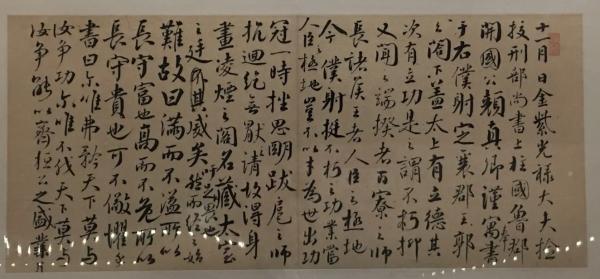 十一月日金紫光禄大夫捡
挍刑部尚書上柱國魯郡
開國公顏真卿謹寓書
于右僕射定襄郡王郭
公閣下蓋太上有立德其
次有立功是之謂不朽抑
又聞之端揆者百寮之師
長諸侯王者人臣之極地
今僕射挺不朽之功業當
人臣之極地豈不以才為世出功
冠一時挫思明跋扈之師
抗迴紇無厭之請故得身
畫凌煙之閣名藏太室
之廷吁足畏也矣然而終之始
難故曰滿而不溢所以
長守富也高而不危所以
長守貴也可不儆懼乎
書曰尔唯弗矜天下莫与
汝争功尔唯不伐天下莫与
汝争能以齊桓公之盛業片